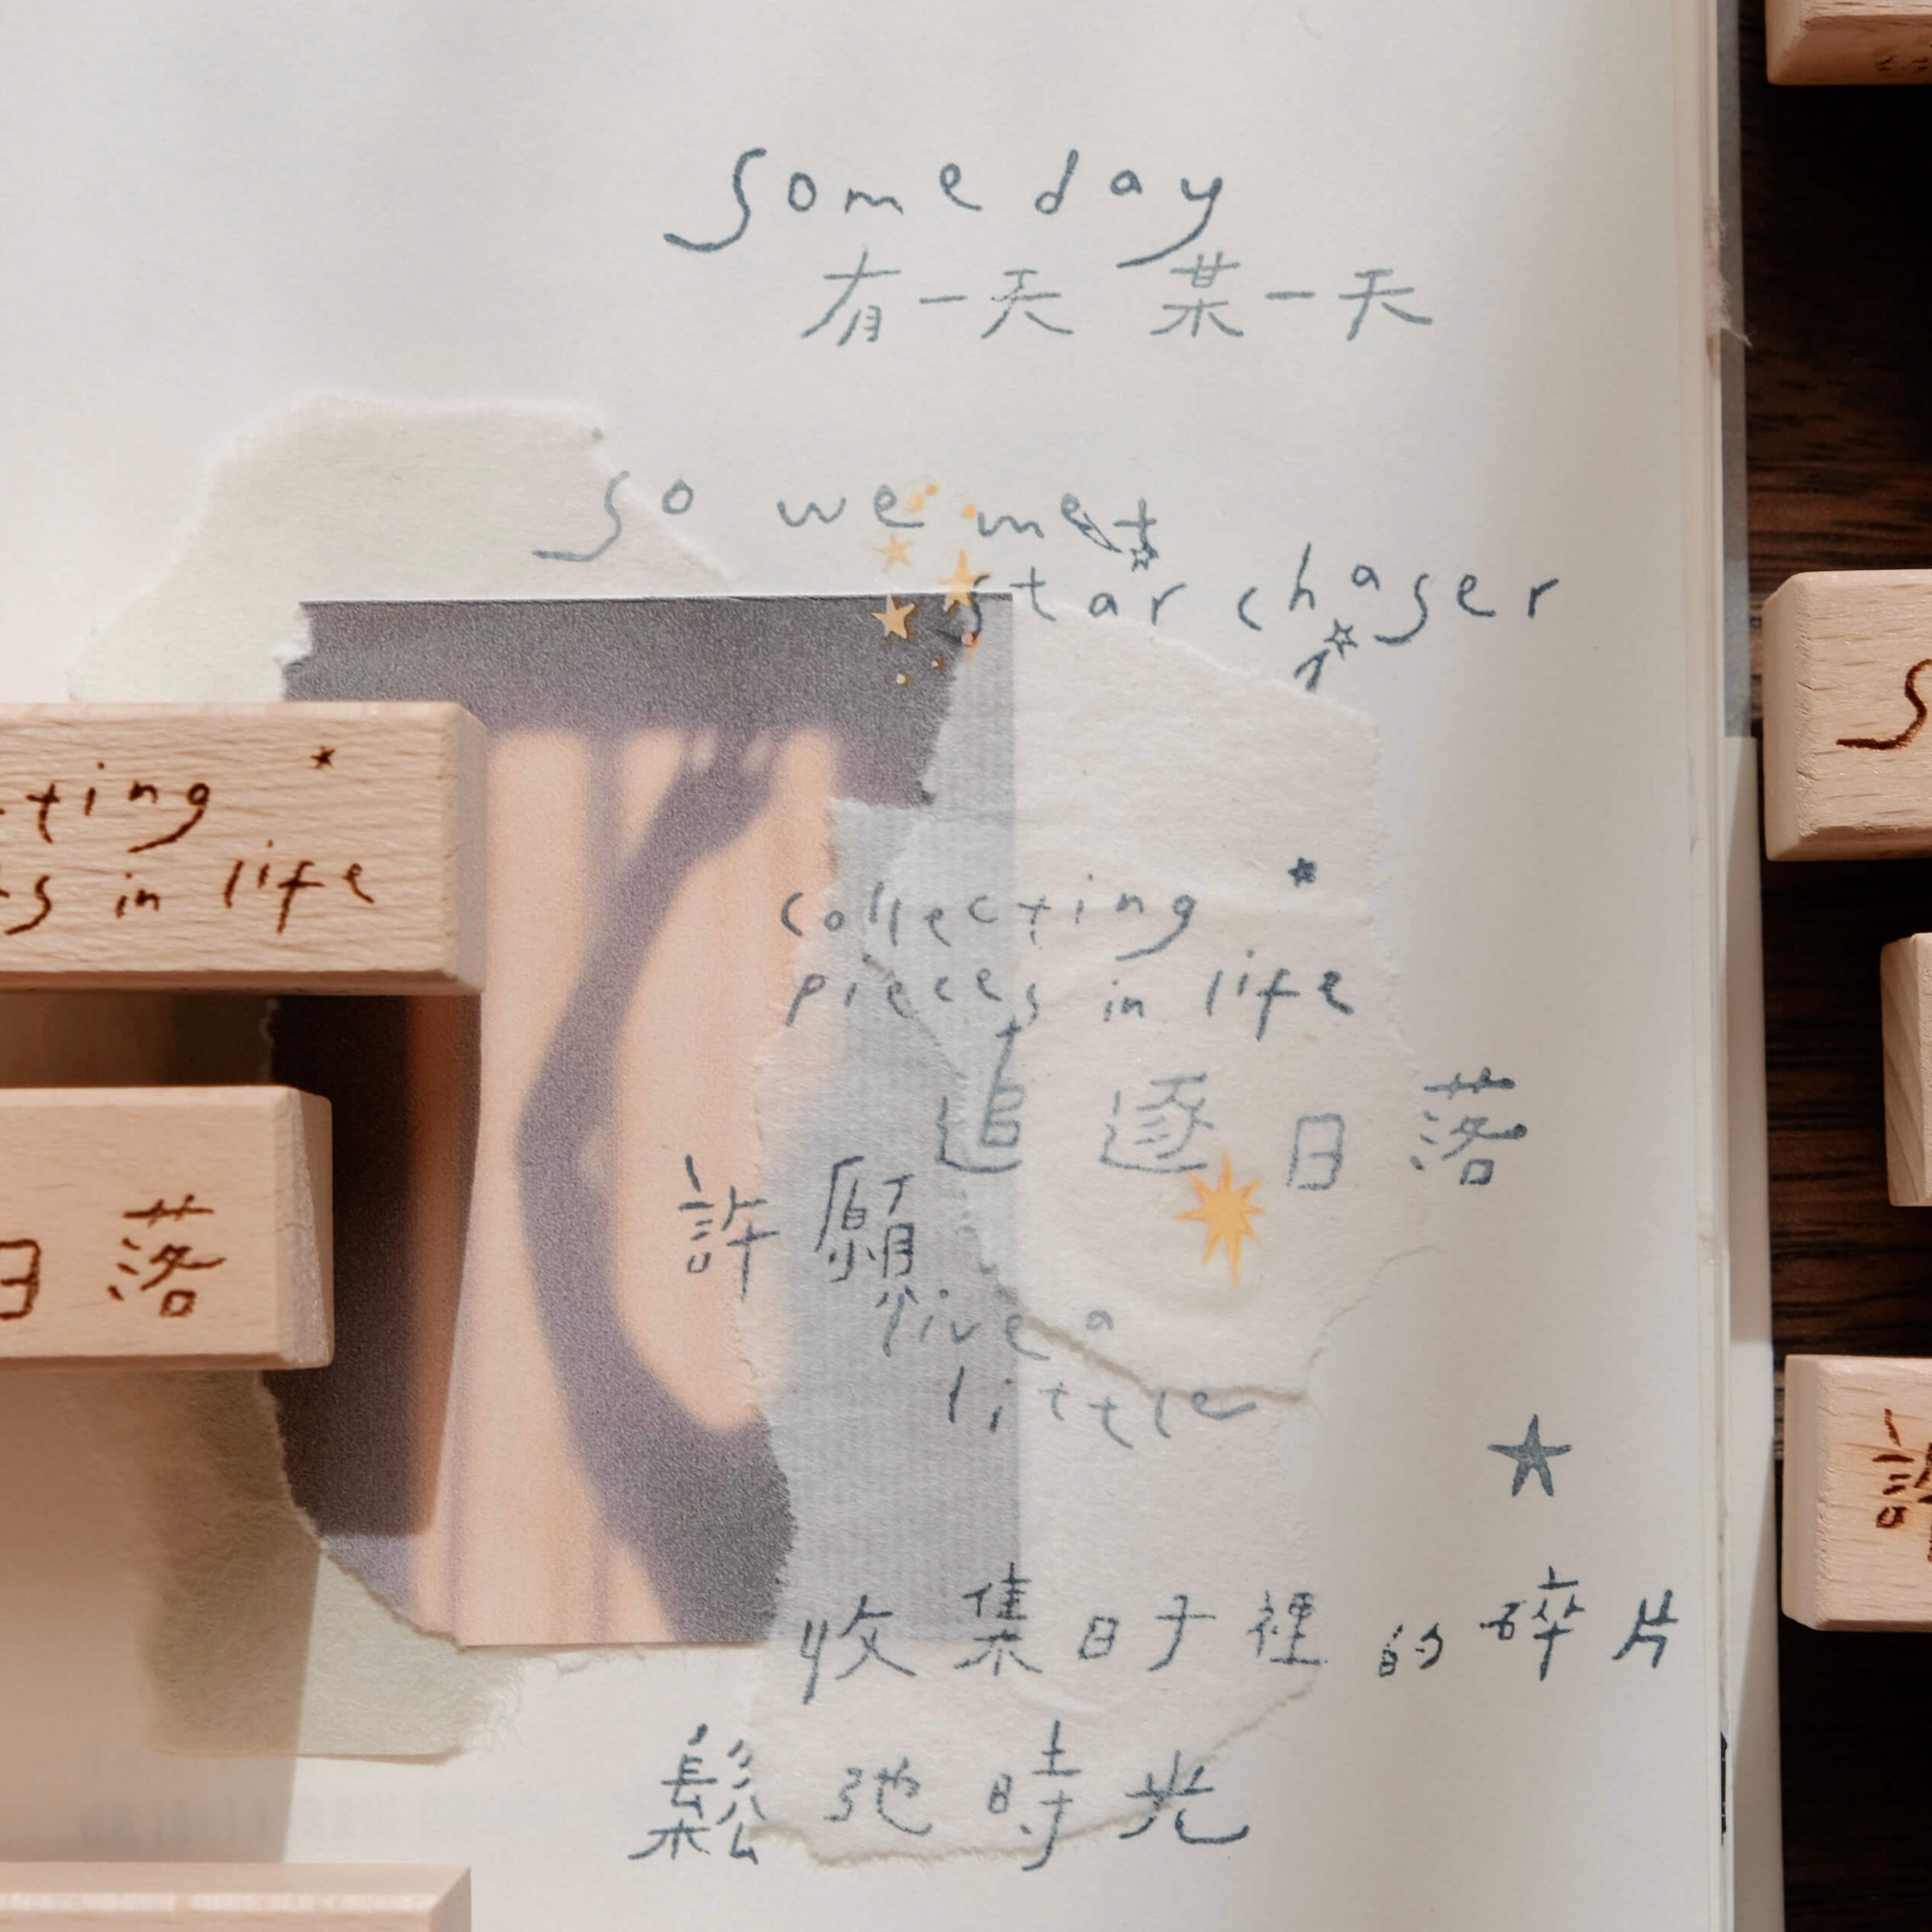 someday
有一天 某一天
so we met
star chaser
collecting
pieces in life
追逐日落
許願
live a
little
收集日子裡的碎片
鬆弛時光
ting
s in life
日落